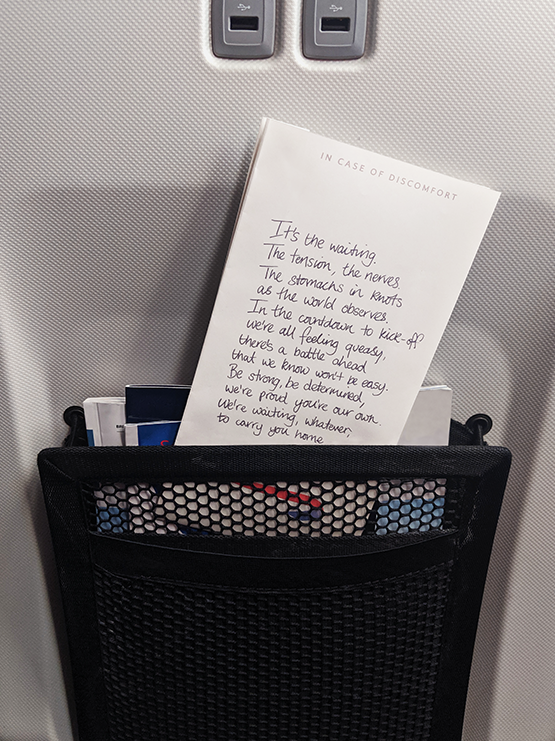 IN CASE OF DISCOMFORT
It's the waiting.
The tension, the nerves.
The stomachs in knots
as the world observes.
In the countdown to kick-off
we're all feeling queasy,
there's a battle ahead
that we know won't be easy.
Be strong, be determined,
we're proud you're our own.
We're waiting, whatever,
to carry you home